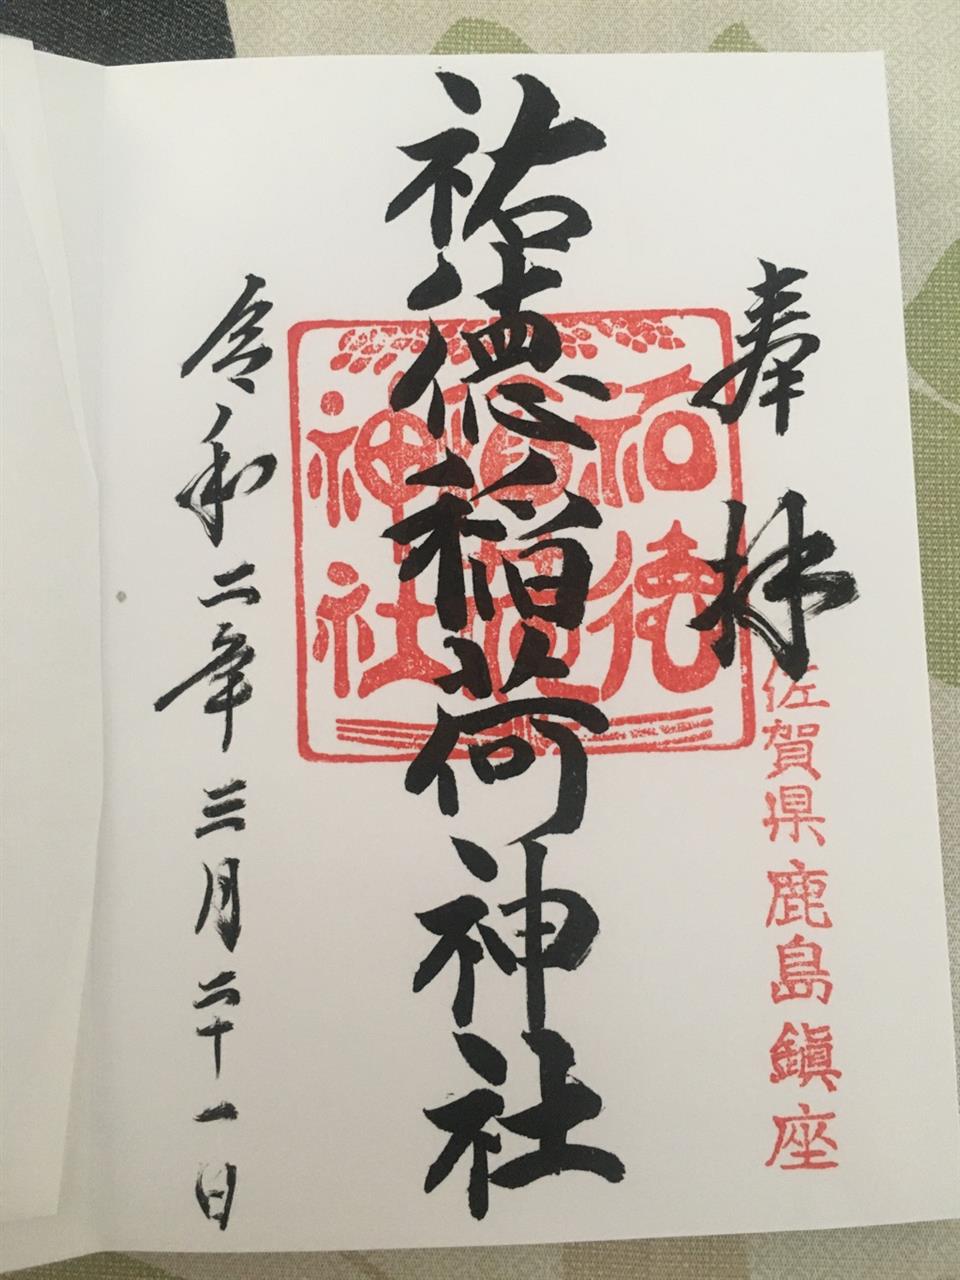 奉拝
佐賀県鹿島鎮座
祐徳稲荷神社
祐徳
稲荷
神社
令和二年三月二十一日